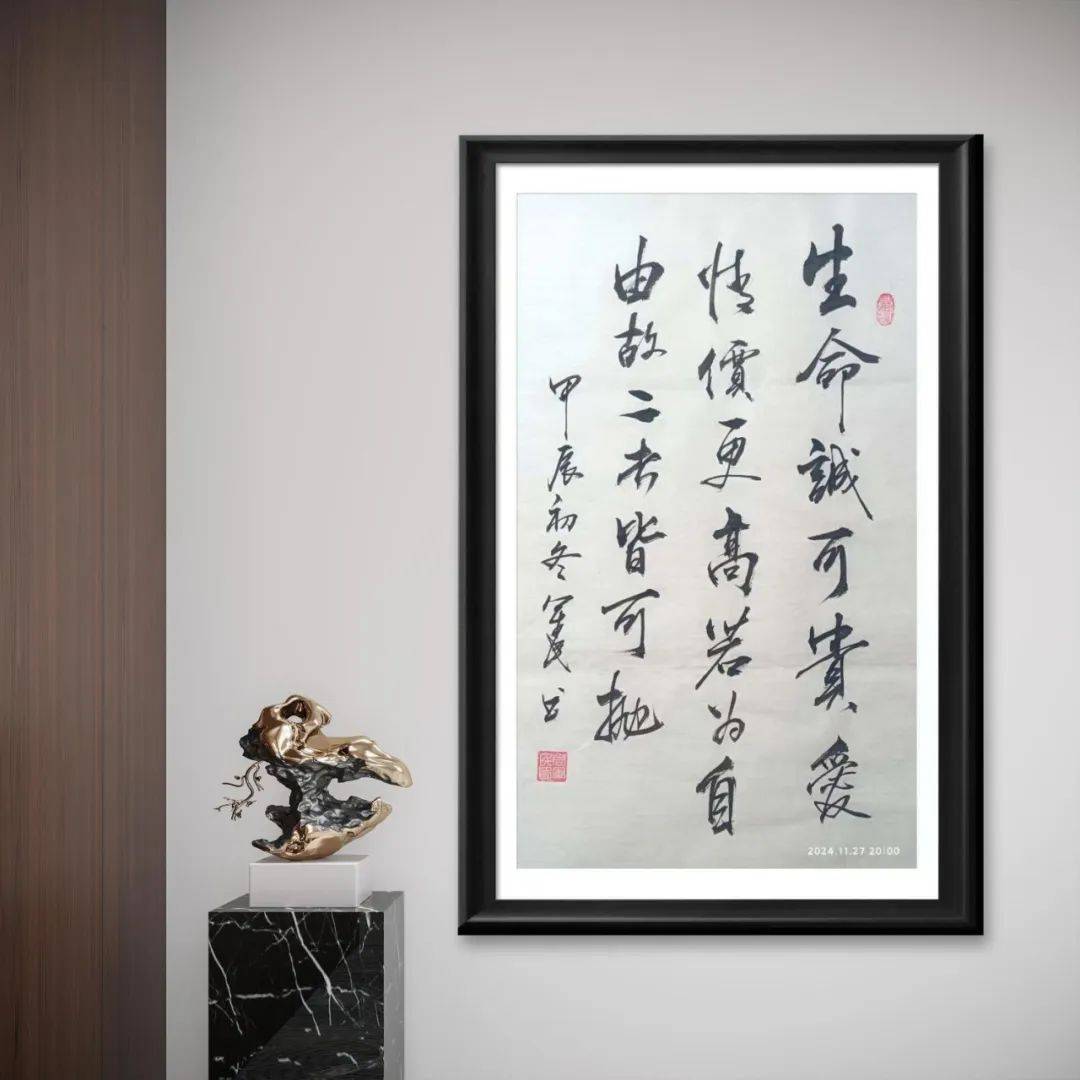 生命誠可貴愛
情價更高若为自
由故二者皆可抛
甲辰初冬军民书
2024.11.27 20:00